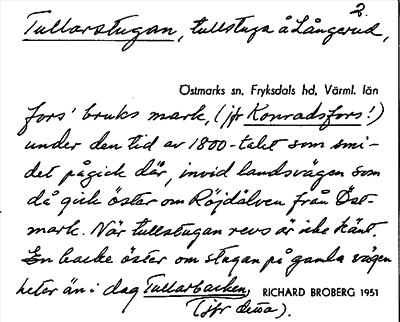 2.
Tullarstugan, tullstuga å Långerud,
Östmarks sn. Fryksdals hd, Värml. län
fors' bruks mark, (jfr Konradsfors!)
under den tid av 1800-talet som smi-
det pågick där, invid landsvägen som
då gick öster om Röjdälven från Öst-
mark. När tullstugan revs är icke känt.
En backe öster om stugan på gamla vägen
heter än i dag Tullarbacken, RICHARD BROBERG 1951
(jfr dessa).